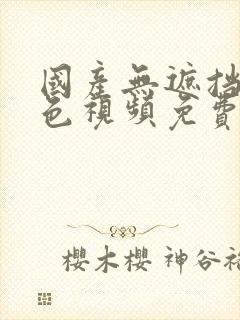 國產無遮挡
色視頻免費
櫻木櫻 神谷